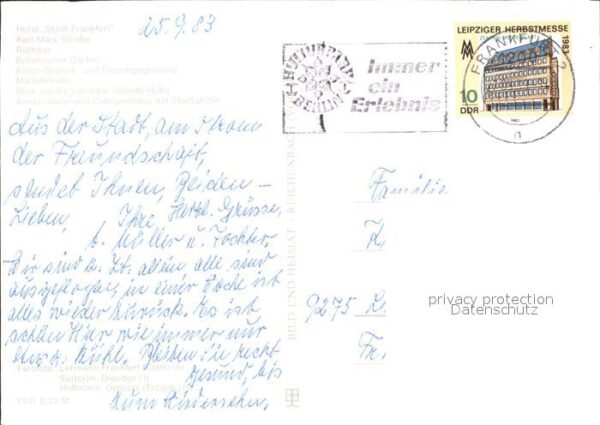 Hotel "Stadt Frankfurt"
Karl-Marx-Straße
Rathaus
Botanischer Garten
Kleist-Gedenk- und Forschungsstätte
Marienkirche
Blick auf die Salvador-Allende-Höhe
Konzerthalle und Collegienhaus mit Stadtarchiv
25.9.83
Aus der Stadt, am Strom
der Freundschaft,
sendet Ihnen, Beiden –
Lieben, Herzl. Grüsse,
Ihre
Müller u. Tochter
Wir sind z. Zt. allein alle sind
ausgeflogen, in einer Woche ist
alles wieder zurück. Es ist
schön Hier wie immer nur
etwas kühl. Bleiben Sie recht
Gesund, bis
zum Wiedersehen,
Farbfoto: Lehmann, Frankfurt (Oder) (6)
Sütterlin, Dresden (1)
Hoffmann,
DDR 0,25 M
BILD UND HEIMAT · REICHENBACH
KULTURPARK
BERLIN
Immer
ein
Erlebnis
LEIPZIGER HERBSTMESSE
1983
10
DDR
FRANKFURT
Familie
K.
9275 L.
Fr.
privacy protection
Datenschutz